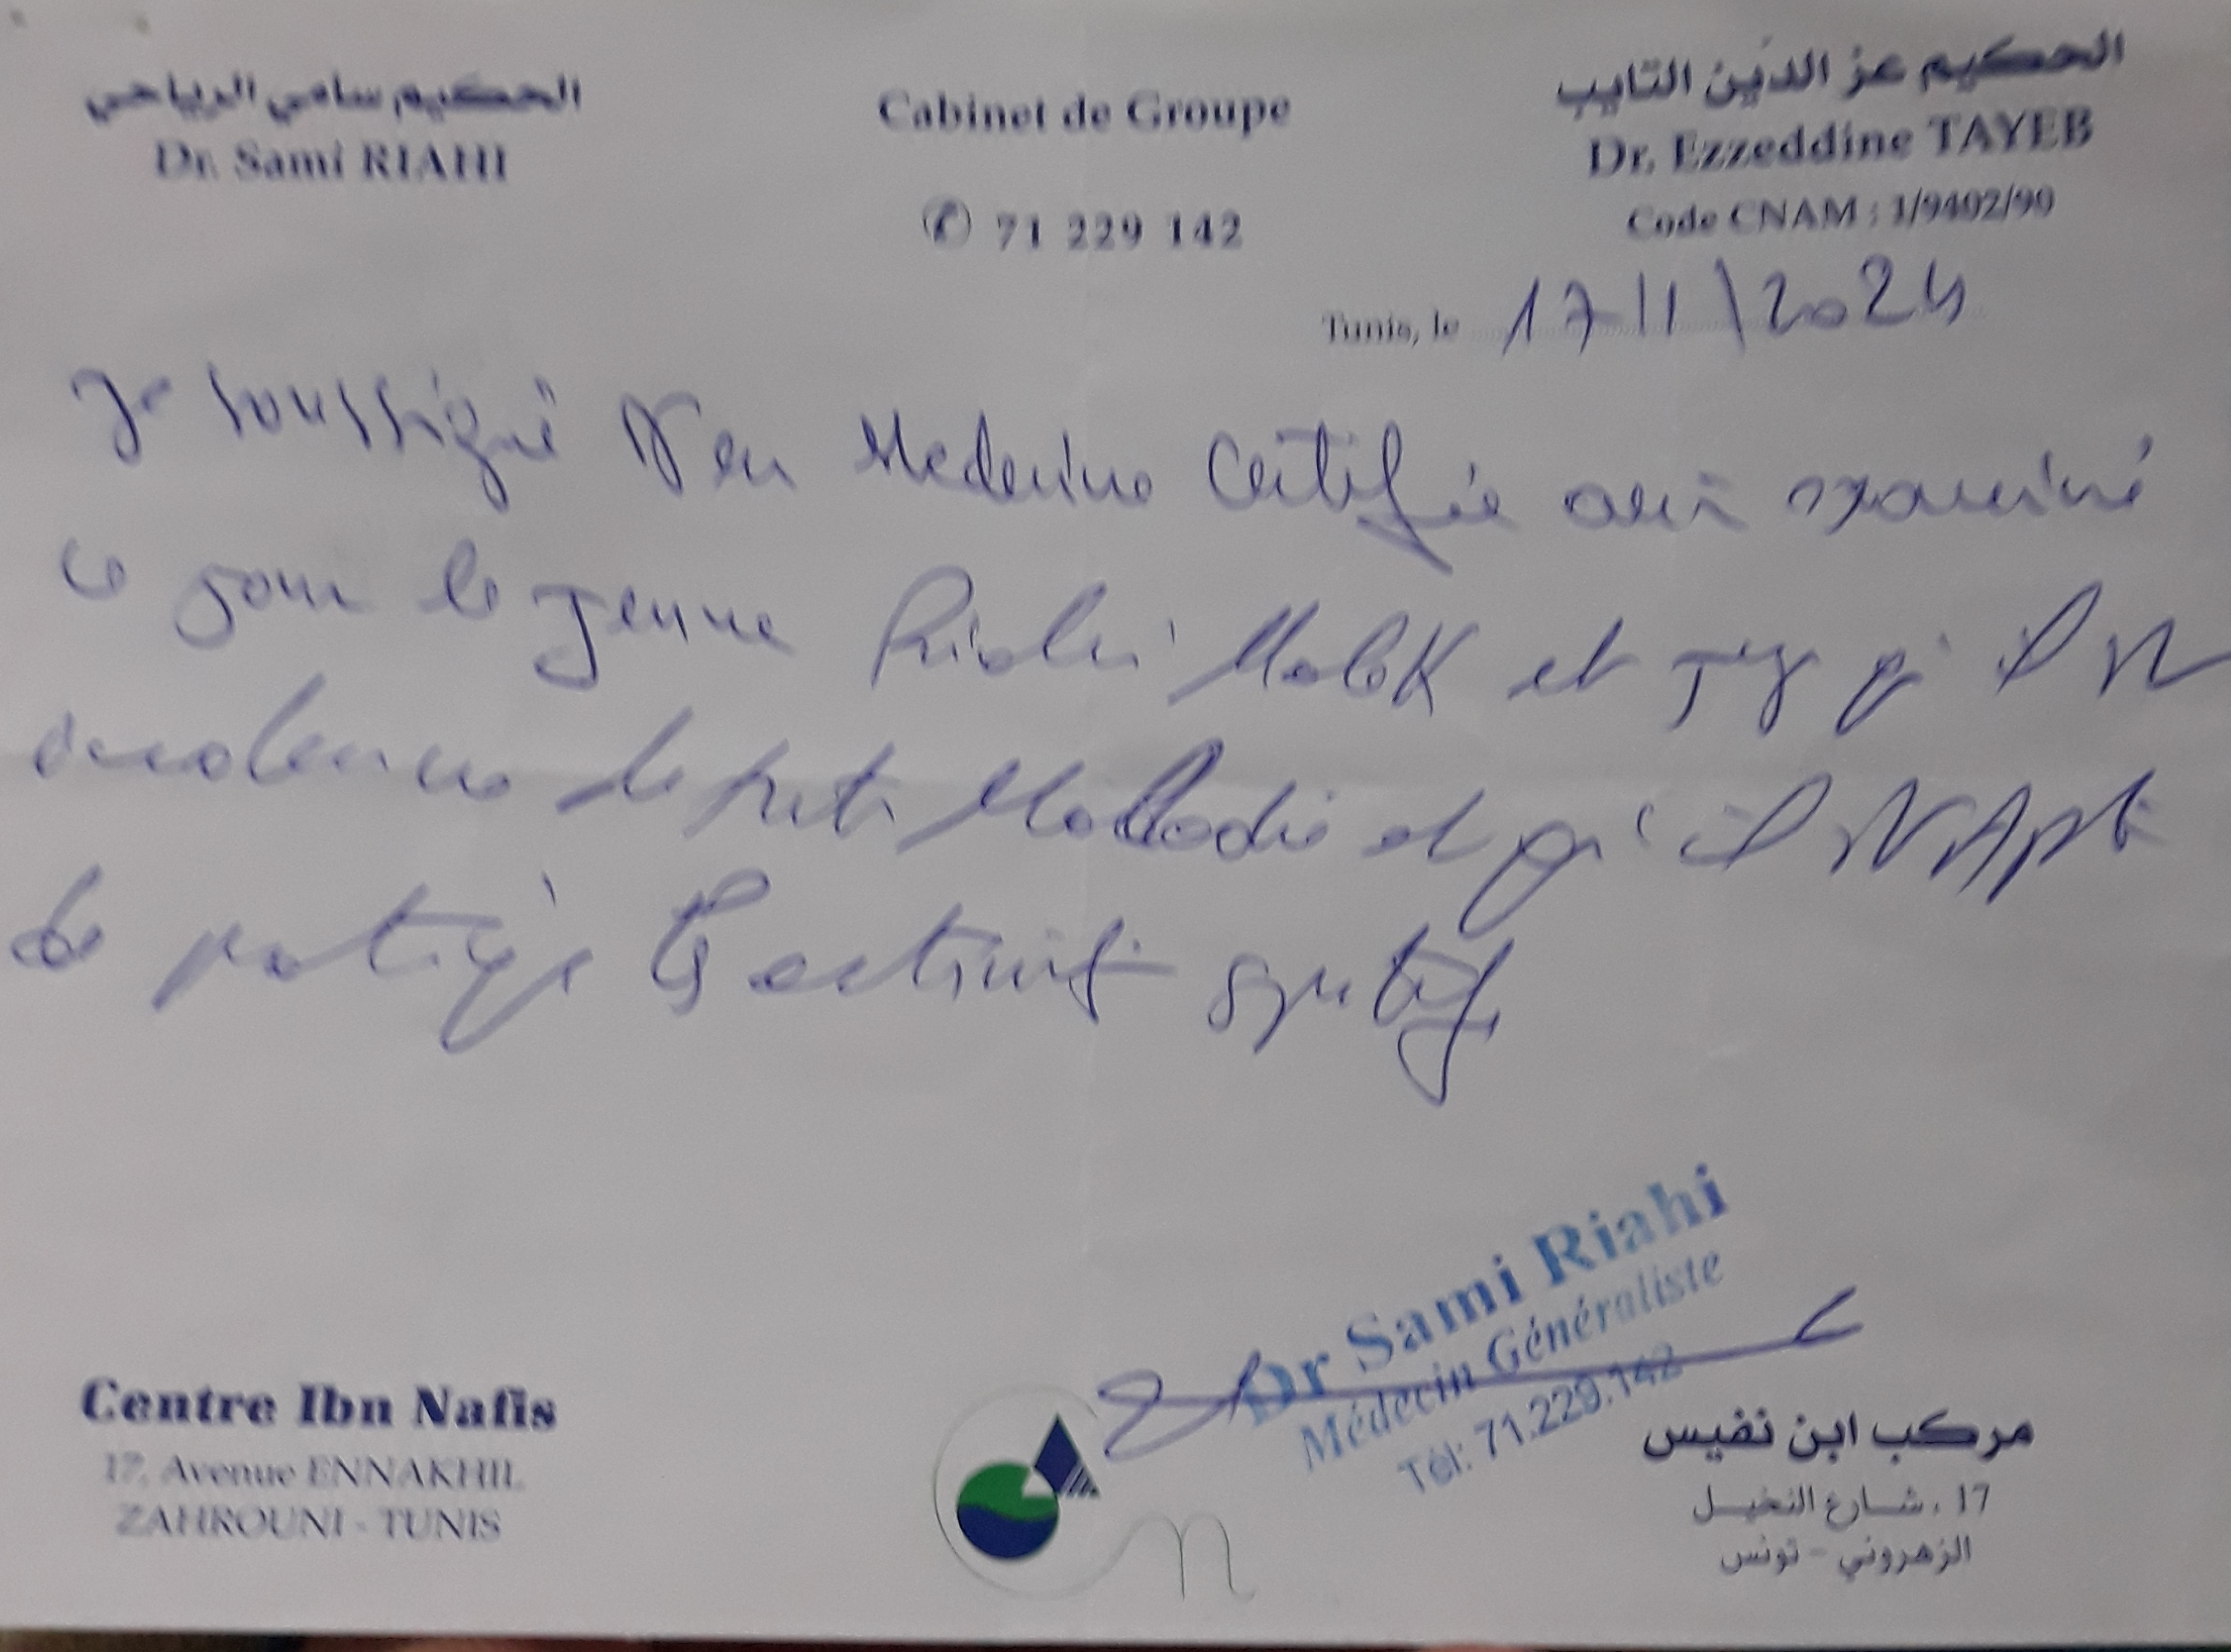 الحكيم سامي الرياحي
Dr. Sami RIAHI
Cabinet de Groupe
✆ 71 229 142
الحكيم عز الدين التايب
Dr. Ezzeddine TAYEB
Code CNAM : 1/9402/99
Tunis, le 17/11/2024
Je soussigné Dr en Medecine Certifie avoir examiné
ce jour le jeune Riahi Malek et qu'il est
de toute Maladie et qu'il est Apte
de pratiqué les activité sportif
Dr Sami Riahi
Médecin Généraliste
Tél: 71.229.142
Centre Ibn Nafis
17, Avenue ENNAKHIL
ZAHROUNI - TUNIS
مركب ابن نفيس
17 ، شارع النخيل
الزهروني - تونس